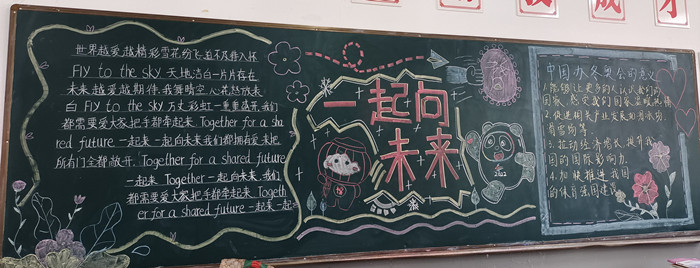 世界越爱越精彩雪花纷飞迫不及待入怀
FLY to the sky 天地洁白一片片存在
未来越爱越期待，我舞晴空心花怒放表
白 FLY to the sky 万丈彩虹一重重盛开，我们
都需要爱大家把手都牵起来.Together for a sha
red future 一起来一起向未来我们都拥有爱来把
所有门全都敞开.Together for a shared future
一起来 Together 一起向未来，我们
都需要爱大家把手都牵起来 Togeth
er for a shared future 一起来一起
一起向
未来
中国办冬奥会的意义
1.能够让更多的人认识我们的
国家,感受我们国家
2.促进相关产业发展
3.拉动经济增长,提升我
国的国际影响力.
4.加快推进我国
的体育强国建设
成才